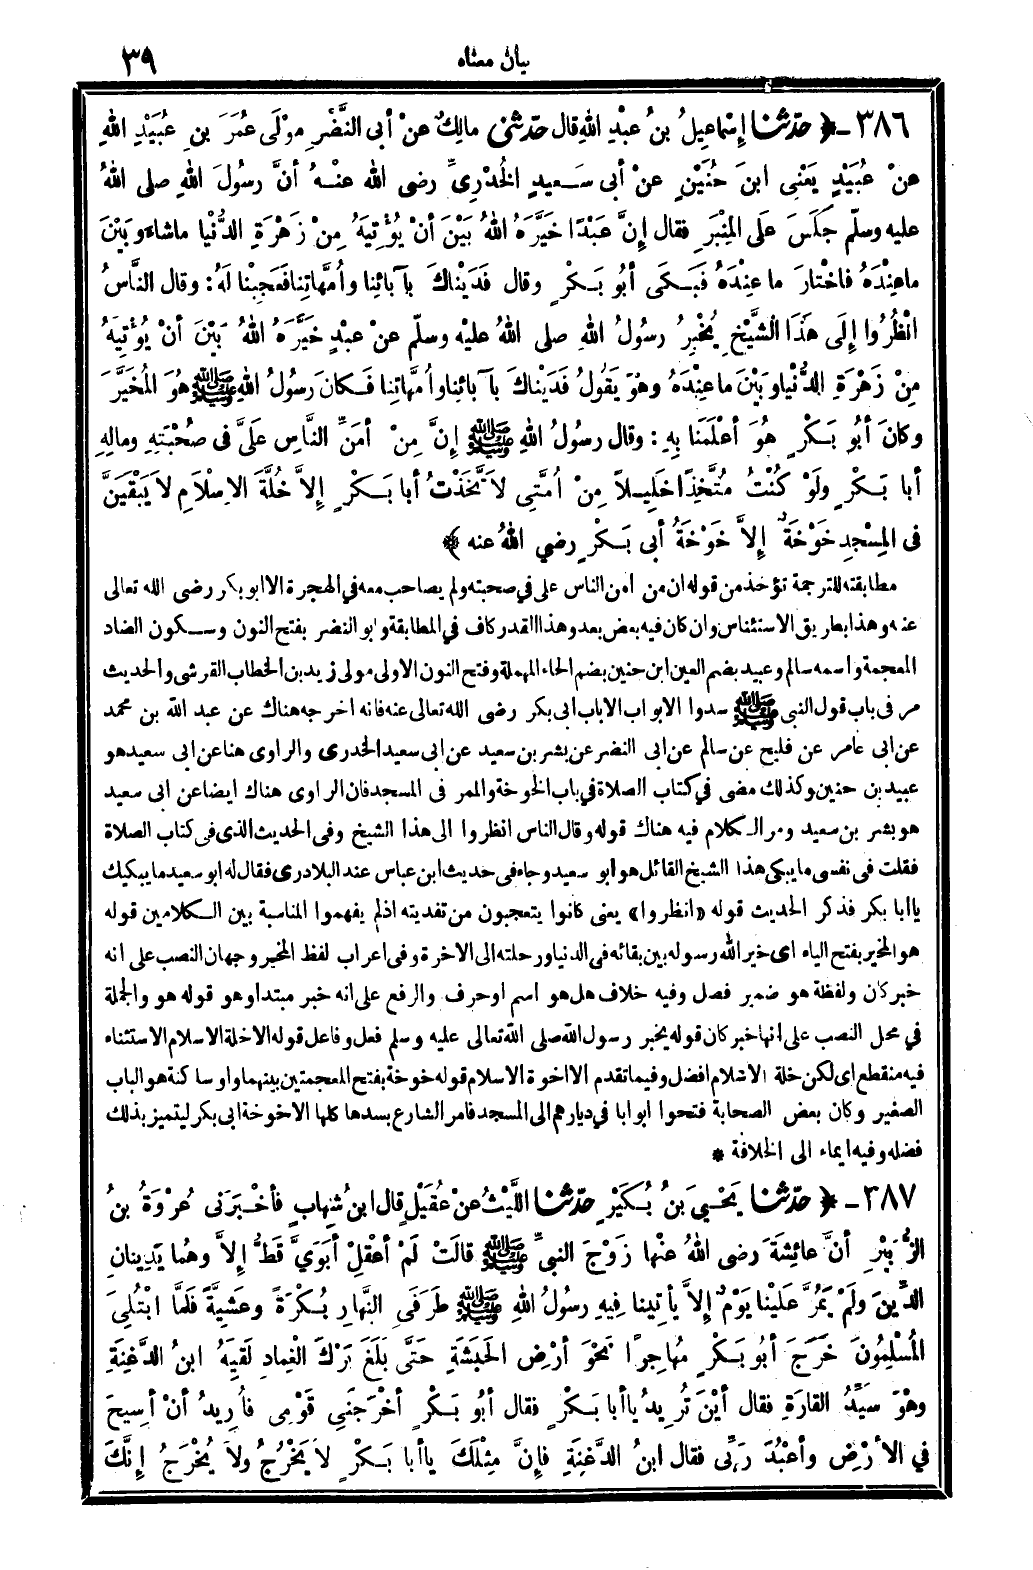 بيان معناه ٣٩
٣٨٦ - ﴿ حدّثنا إِسْماعِيلُ بنُ عبدِ اللهِ قال حدّثني مالِكٌ عنْ أبي النَّضْرِ مَوْلَى عُمَرَ بنِ عُبَيْدِ اللهِ
عنْ عُبَيْدٍ يَعْنِي ابنَ حُنَيْنٍ عنْ أبي سَعِيدٍ الخُدْرِيِّ رضى الله عنْهُ أنَّ رسُولَ اللهِ صلى اللهُ
عليه وسلّم جَلَسَ عَلَى المِنْبَرِ فقال إِنَّ عَبْدًا خَيَّرَهُ اللهُ بَيْنَ أنْ يُؤْتِيَهُ مِنْ زَهْرَةِ الدُّنْيا ماشاءَ وبَيْنَ
ماعِنْدَهُ فاخْتارَ ما عِنْدَهُ فَبَكَى أبُو بَكْرٍ وقال فَدَيْناكَ بِآبائِنا وأُمَّهاتِنا فَعَجِبْنا لَهُ : وقال النَّاسُ
انْظُرُوا إِلَى هٰذَا الشَّيْخِ يُخْبِرُ رسولُ اللهِ صلى اللهُ عليْه وسلّم عنْ عبْدٍ خَيَّرَهُ اللهُ بَيْنَ أنْ يُؤْتِيَهُ
مِنْ زَهْرَةِ الدُّنْيا وبَيْنَ ماعِنْدَهُ وهْوَ يَقُولُ فَدَيْناكَ بِآبائِنا وأُمَّهاتِنا فَكانَ رَسولُ اللهِ ﷺ هُوَ المُخَيَّرَ
وكانَ أبُو بَكْرٍ هُوَ أعْلَمَنا بِهِ : وقال رسولُ اللهِ ﷺ إِنَّ مِنْ أمَنِّ النَّاسِ عَلَيَّ فى صُحْبَتِهِ ومالِهِ
أبا بَكْرٍ ولَوْ كُنْتُ مُتَّخِذًا خَلِيلاً مِنْ أُمَّتِى لاَتَّخَذْتُ أبا بَكْرٍ إِلاَّ خُلَّةَ الاِسْلاَمِ لاَ يَبْقَيَنَّ
فى المَسْجِدِ خَوْخَةٌ إِلاَّ خَوْخَةُ أبى بَكْرٍ رضي اللهُ عنه ﴾
مطابقته للترجمة تؤخذ من قوله ان من امن الناس على في صحبته ولم يصاحب معه في الهجرة الا ابو بكر رضى الله تعالى
عنه وهذا بطريق الاستئناس وان كان فيه بعض بعد وهذا القدر كاف في المطابقة وابو النضر بفتح النون وسكون الضاد
المعجمة واسمه سالم وعبيد بضم العين ابن حنين بضم الحاء المهملة وفتح النون الاولى مولى زيد بن الخطاب القرشى والحديث
مر فى باب قول النبى ﷺ سدوا الابواب الا باب ابى بكر رضى الله تعالى عنه فانه اخرجه هناك عن عبد الله بن محمد
عن ابى عامر عن فليح عن سالم عن ابى النضر عن بشر بن سعيد عن ابى سعيد الخدرى والراوى هنا عن ابى سعيد هو
عبيد بن حنين وكذلك مضى في كتاب الصلاة في باب الخوخة والممر فى المسجد فان الراوى هناك ايضا عن ابى سعيد
هو بشر بن سعيد ومر الكلام فيه هناك قوله وقال الناس انظروا الى هذا الشيخ وفى الحديث الذى فى كتاب الصلاة
فقلت فى نفسى ما يبكى هذا الشيخ القائل هو ابو سعيد وجاء فى حديث ابن عباس عند البلادرى فقال له ابو سعيد ما يبكيك
يا ابا بكر فذكر الحديث قوله «انظروا» يعنى كانوا يتعجبون من تفديته اذ لم يفهموا المناسبة بين الكلامين قوله
هو المخير بفتح الياء اى خير الله رسوله بين بقائه فى الدنيا ورحلته الى الاخرة وفى اعراب لفظ المخير وجهان النصب على انه
خبر كان ولفظة هو ضمير فصل وفيه خلاف هل هو اسم او حرف والرفع على انه خبر مبتدا وهو قوله هو والجملة
في محل النصب على انها خبر كان قوله يخبر رسول الله صلى الله تعالى عليه وسلم فعل وفاعل قوله الا خلة الاسلام الاستثناء
فيه منقطع اى لكن خلة الاسلام افضل وفيما تقدم الا اخوة الاسلام قوله خوخة بفتح المعجمتين بينهما واو ساكنة هو الباب
الصغير وكان بعض الصحابة فتحوا ابوابا في ديارهم الى المسجد فامر الشارع بسدها كلها الا خوخة ابى بكر ليتميز بذلك
فضله وفيه ايماء الى الخلافة *
٣٨٧ - ﴿ حدّثنا يَحْيى بنُ بُكَيْرٍ حدّثنا اللَّيْثُ عنْ عُقَيْلٍ قال ابنُ شِهابٍ فأخْبَرَنى عُرْوَةُ بنُ
الزُّبَيْرِ أنَّ عائِشَةَ رضى اللهُ عنْها زَوْجَ النبىِّ ﷺ قالَتْ لَمْ أعْقِلْ أبَوَيَّ قَطُّ إِلاَّ وهُما يَدِينانِ
الدِّينَ ولَمْ يَمُرَّ عَلَيْنا يَوْمٌ إِلاَّ يأْتِينا فِيهِ رسولُ اللهِ ﷺ طَرَفَيِ النَّهارِ بُكْرَةً وعَشِيَّةً فَلَمَّا ابْتُلِىَ
المُسْلِمُونَ خَرَجَ أبُو بَكْرٍ مُهاجِرًا نَحْوَ أرْضِ الحَبَشَةِ حَتَّى بَلَغَ بَرْكَ الغِمادِ لَقِيَهُ ابنُ الدَّغِنَةِ
وهْوَ سَيِّدُ القارَةِ فقال أيْنَ تُرِيدُ يا أبا بَكْرٍ فقال أبُو بَكْرٍ أخْرَجَنِي قَوْمِى فأُرِيدُ أنْ أسِيحَ
في الأرْضِ وأعْبُدَ رَبِّى فقال ابنُ الدَّغِنَةِ فإِنَّ مِثْلَكَ ياأبا بَكْرٍ لاَ يَخْرُجُ ولاَ يُخْرَجُ إِنَّكَ